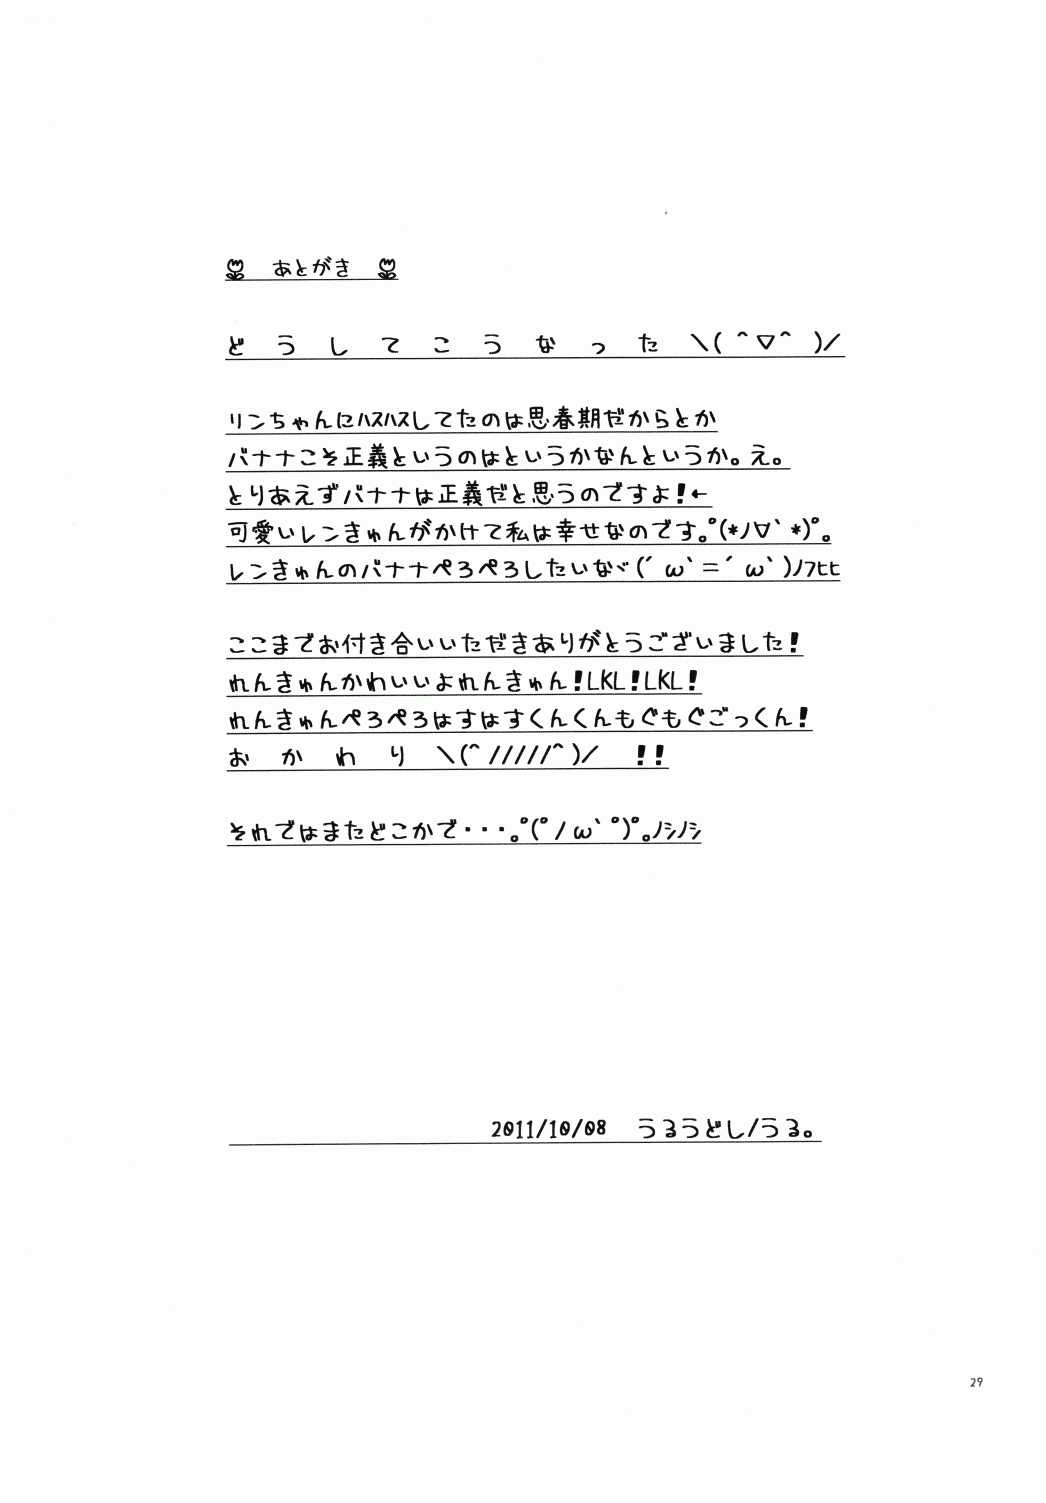 あとがき
どうしてこうなった＼( ^▽^ )／
リンちゃんにﾊｽﾊｽしてたのは思春期だからとか
バナナこそ正義というのはというかなんというか。え。
とりあえずバナナは正義だと思うのですよ！←
可愛いレンきゅんがかけて私は幸せなのです｡ﾟ(*ﾉ∀`*)ﾟ｡
レンきゅんのバナナぺろぺろしたいなヾ(´ω`＝´ω`)ﾉﾌﾋﾋ
ここまでお付き合いいただきありがとうございました！
れんきゅんかわいいよれんきゅん！LKL！LKL！
れんきゅんぺろぺろはすはすくんくんもぐもぐごっくん！
おかわり＼(^/////^)／ ！！
それではまたどこかで・・・｡ﾟ(ﾟﾉω`ﾟ)ﾟ｡ﾉｼﾉｼ
2011/10/08 うるうどし/うる。
29